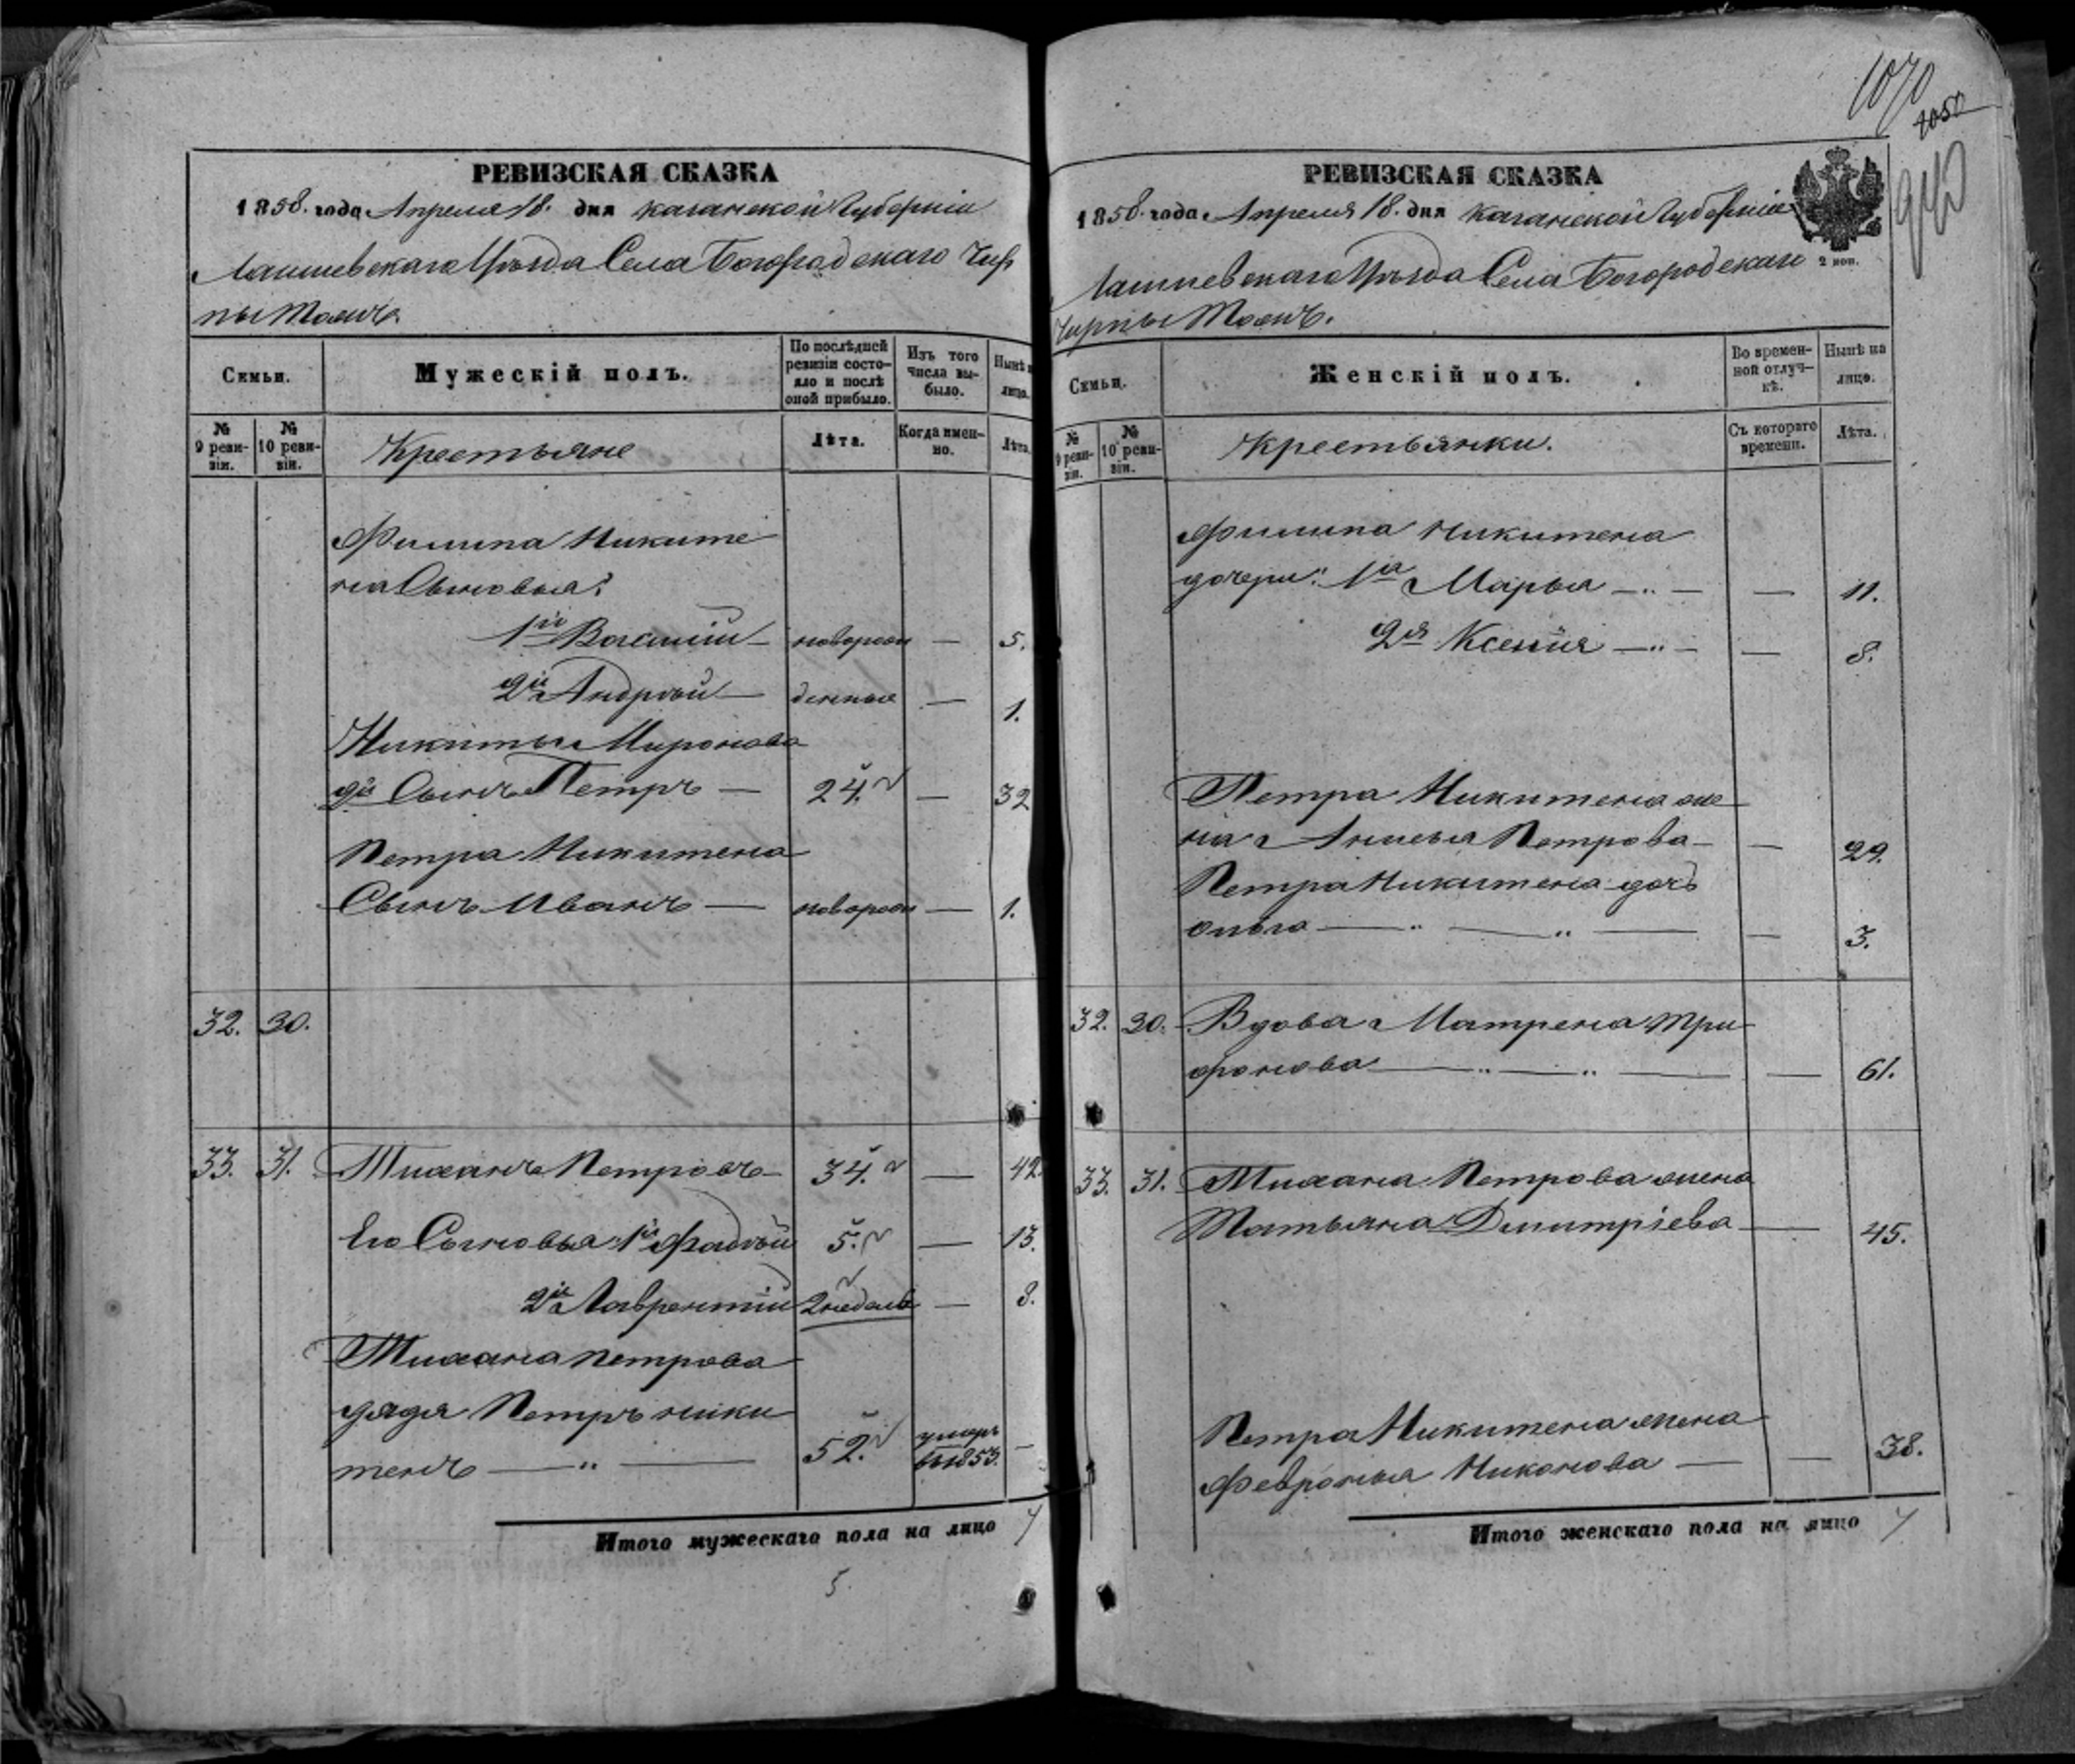 РЕВИЗСКАЯ СКАЗКА
1858. года Апреля 18. дня Казанской Губернiи
Лаишевскаго Уѣзда Села Богородскаго Чир
пы Тожъ.
Семьи.
Мужескій полъ.
По послѣдней ревизіи состояло и послѣ оной прибыло.
Изъ того числа выбыло.
Нынѣ н
лицо.
№ 9 ревизіи.
№ 10 ревизіи.
Крестьяне
Лѣта.
Когда именно.
Лѣта.
Филипа Никите
на Сыновья:
1й Василій — новорож — 5.
2й Андрѣй — денные — 1.
Никиты Миронова
2й Сынъ Петръ — 24. — 32
Петра Никитена
Сынъ Иванъ — новорож — 1.
32. 30.
33. 31. Тиханъ Петровъ — 34. — 42.
Его Сыновья 1й Фадѣй 5. — 13.
2й Лаврентій 2 недель — 8.
Тихана Петрова
дядя Петръ Ники
тенъ — " — 52. умеръ въ 1853. —
Итого мужескаго пола на лицо 7
5.
1070
1050
РЕВИЗСКАЯ СКАЗКА
1858. года Апреля 18. дня Казанской Губернiи
2 коп.
Лаишевскаго Уѣзда Села Богородскаго
Чирпы Тожъ.
Семьи.
Женскій полъ.
Во временной отлучкѣ.
Нынѣ на лицо.
№ 9 ревизіи.
№ 10 ревизіи.
Крестьянки.
Съ котораго времени.
Лѣта.
Филипа Никитена
дочери: 1я Марья — " — — 11.
2я Ксенія — " — — 8.
Петра Никитена же
на Анисья Петрова — — 29.
Петра Никитена дочь
Ольга — " — " — — 3.
32. 30. Вдова Матрена Три
фонова — " — " — — 61.
33. 31. Тихана Петрова жена
Татьяна Дмитріева — 45.
Петра Никитена жена
Февронья Никонова — — 38.
Итого женскаго пола на лицо 7